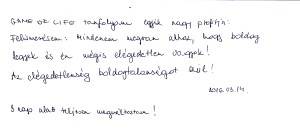 GAME OF LIFE tanfolyam egyik nagy profitja:
Felismerésem: Mindenem megvan ahhoz, hogy boldog
legyek és én mégis elégedetlen vagyok!
Az elégedetlenség boldogtalanságot szül!
2016.03.14
3 nap alatt teljesen megváltoztam!